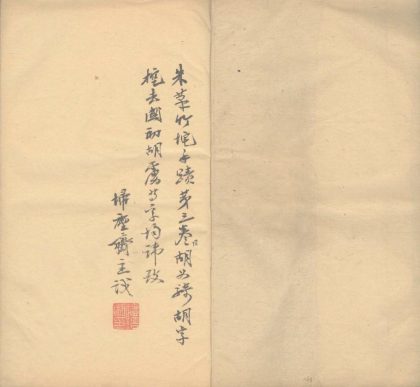 朱竹垞手蹟第三卷胡騎胡字
挖去國初胡虜等字均諱改
掃塵齋主識